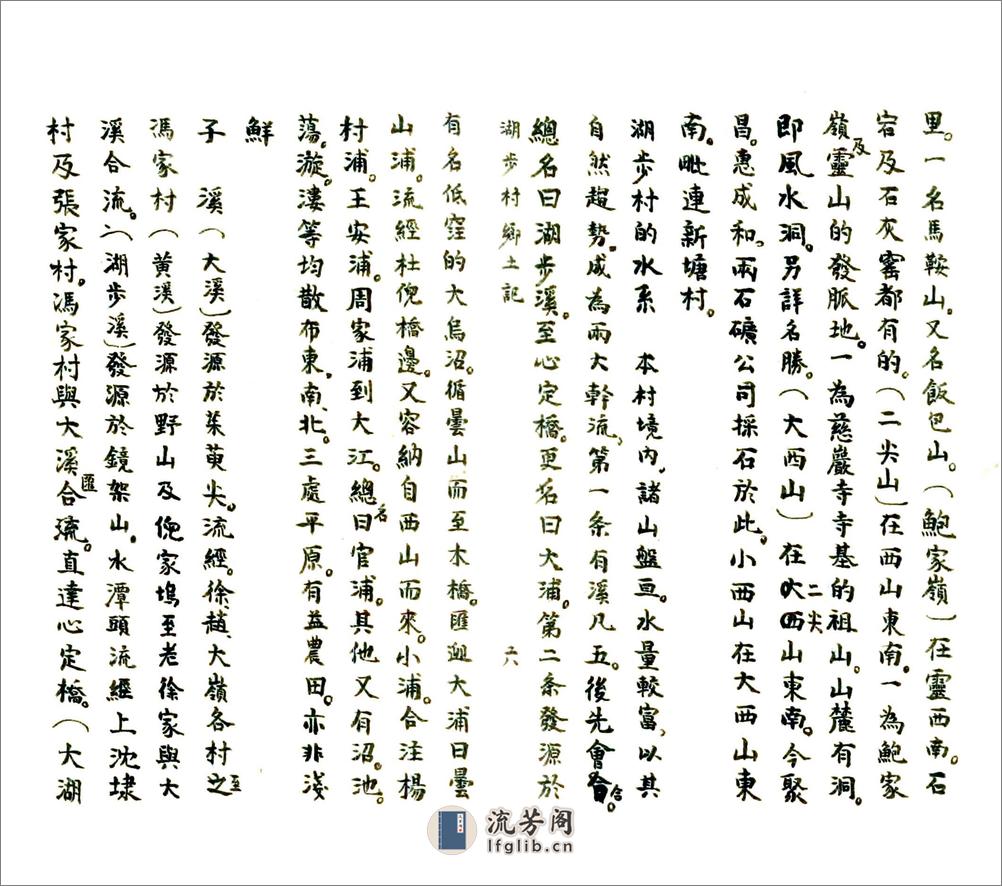 里。一名馬鞍山。又名飯包山。（鮑家嶺）在靈西南。石
宕及石灰窰都有的。（二尖山）在西山東南。一為鮑家
嶺及靈山的發脈地。一為慈巖寺寺基的祖山。山麓有洞。
即風水洞。另詳名勝。（大西山）在二尖山東南。今聚
昌。惠成和。兩石礦公司採石於此。小西山在大西山東
南。毗連新塘村。
湖步村的水系　本村境內，諸山盤亘。水量較富，以其
自然趨勢。成為兩大幹流，第一条有溪凡五。後先會合。
總名曰湖步溪。至心定橋。更名曰大浦。第二条發源於
湖步村鄉土記　六
有名低窪的大烏沼。循曇山而至木橋。匯迦大浦曰曇
山浦。流經杜倪橋邊。又容納自西山而來。小浦。合注楊
村浦。王安浦。周家浦到大江。總名曰官浦。其他又有沼。池。
蕩。漩。漊等均散布東，南，北。三處平原。有益農田。亦非淺
鮮
子　溪（大溪）發源於茱萸尖。流經。徐，趙，大嶺各村之至
馮家村（黄溪）發源於野山及倪家塢至老徐家與大
溪合流。（湖步溪）發源於鏡架山。水潭頭流經上沈埭
村及張家村。馮家村與大溪匯合流。直達心定橋。（大湖
流芳阁
lfglib.cn